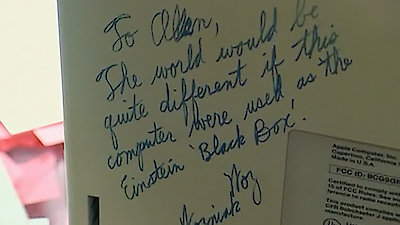 To Allen,
The world would be
quite different if this
computer were used as the
Einstein 'Black Box'.
Woz
Wozniak
Apple Computer, Inc.
Cupertino, California
Made in U.S.A.
FCC ID: BCG9GR
Certified to comply
15 of FCC Rules. See
ference to radio
This product
CFR Subchapter J
manufacture